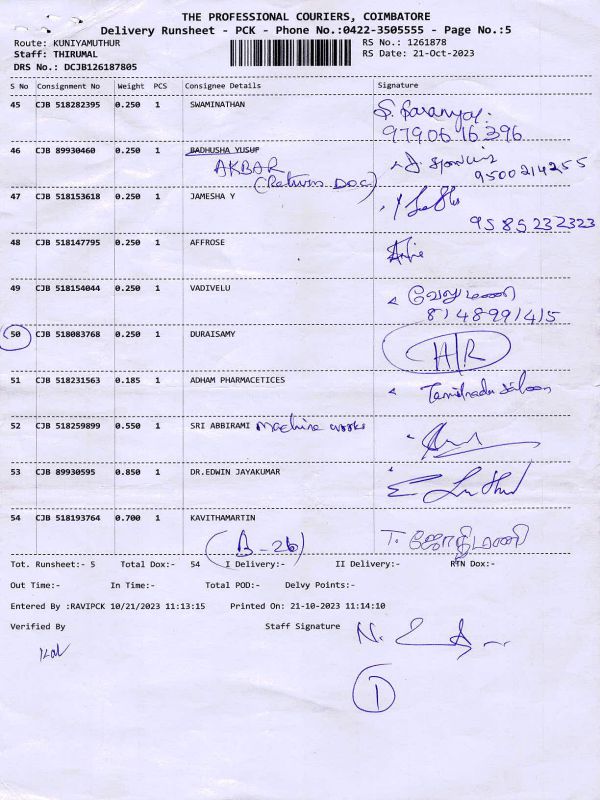 THE PROFESSIONAL COURIERS, COIMBATORE
Delivery Runsheet - PCK - Phone No.:0422-3505555 - Page No.:5
Route: KUNIYAMUTHUR RS No.: 1261878
Staff: THIRUMAL RS Date: 21-Oct-2023
DRS No.: DCJB126187805
S No Consignment No Weight PCS Consignee Details Signature
45 CJB 518282395 0.250 1 SWAMINATHAN S. Saranya
9790616396
46 CJB 89930460 0.250 1 BADHUSHA YUSUF
AKBAR
(Return Doc) 9500214255
47 CJB 518153618 0.250 1 JAMESHA Y
9585232323
48 CJB 518147795 0.250 1 AFFROSE
49 CJB 518154044 0.250 1 VADIVELU வேலுமணி
8148991415
50 CJB 518083768 0.250 1 DURAISAMY H/R
51 CJB 518231563 0.185 1 ADHAM PHARMACETICES Tamilnadu
52 CJB 518259899 0.550 1 SRI ABBIRAMI Machine works
53 CJB 89930595 0.850 1 DR.EDWIN JAYAKUMAR
54 CJB 518193764 0.700 1 KAVITHAMARTIN T. ஜோதிமணி
(B-26)
Tot. Runsheet:- 5 Total Dox:- 54 I Delivery:- II Delivery:- RTN Dox:-
Out Time:- In Time:- Total POD:- Delvy Points:-
Entered By :RAVIPCK 10/21/2023 11:13:15 Printed On: 21-10-2023 11:14:10
Verified By Staff Signature